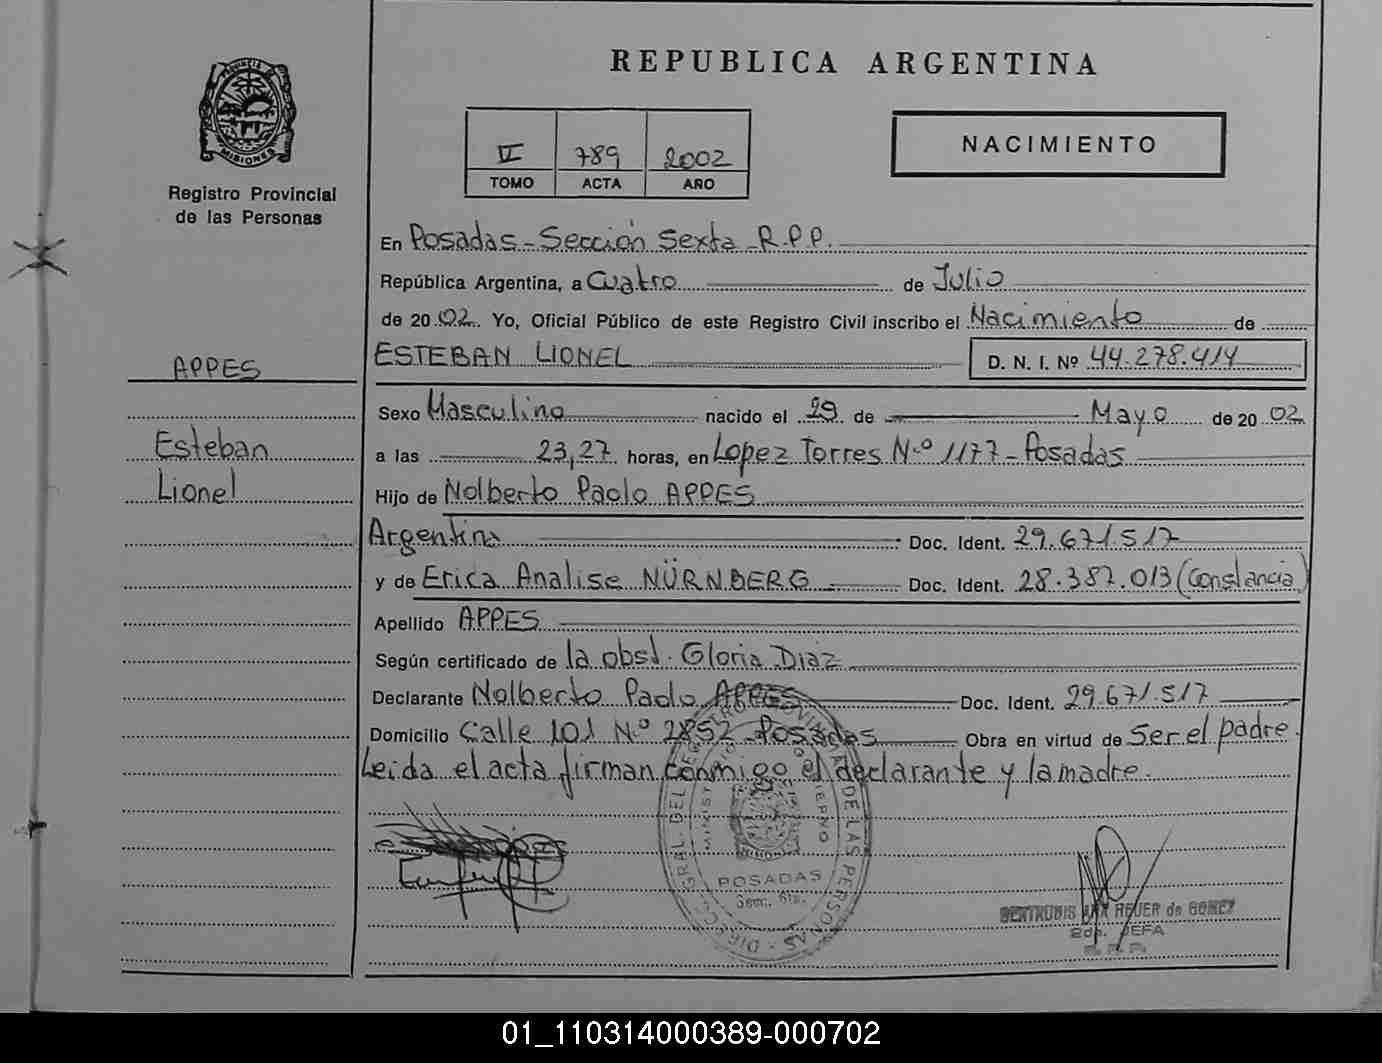 PROVINCIA DE
MISIONES
Registro Provincial
de las Personas
APPES
Esteban
Lionel
REPUBLICA ARGENTINA
IV 789 2002
TOMO ACTA AÑO
NACIMIENTO
En Posadas - Sección Sexta - R.P.P.
República Argentina, a Cuatro de Julio
de 2002. Yo, Oficial Público de este Registro Civil inscribo el Nacimiento de
ESTEBAN LIONEL D. N. I. Nº 44.278.414
Sexo Masculino nacido el 29 de Mayo de 2002
a las 23,27 horas, en Lopez Torres N.º 1177 - Posadas
Hijo de Nolberto Paolo APPES
Argentina Doc. Ident. 29.671.517
y de Erica Analise NÜRNBERG Doc. Ident. 28.387.013 (Constancia)
Apellido APPES
Según certificado de la obst. Gloria Diaz
Declarante Nolberto Paolo APPES Doc. Ident. 29.671.517
Domicilio Calle 101 N.º 2852 - Posadas Obra en virtud de Ser el padre.
Leida el acta firman conmigo el declarante y la madre.
DE LAS PERSONAS
POSADAS
REUER de GOMEZ
JEFA
01_110314000389-000702